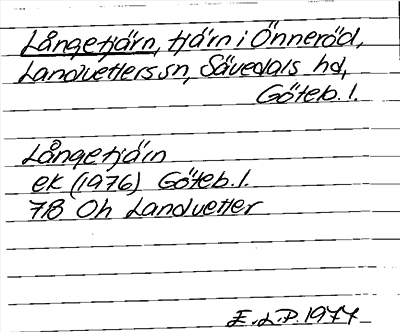 Långetjärn, tjärn i Önneröd,
Landvetters sn, Sävedals hd,
Göteb. l.
Långetjärn
ek (1976) Göteb. l.
7B Oh Landvetter
E.L.P. 1977